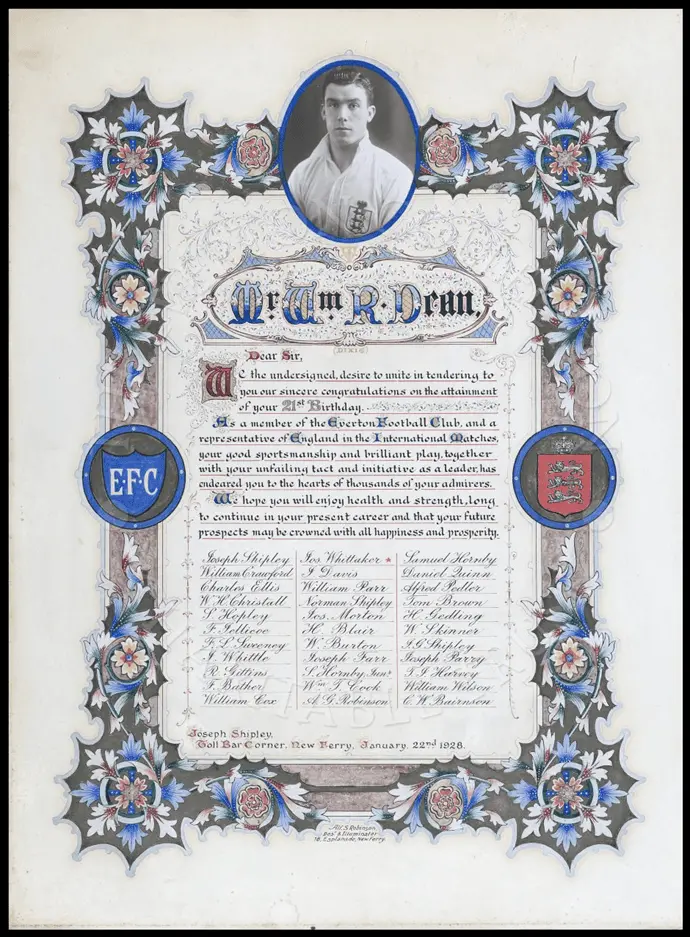 Mr. Wm R. Dean,
DIXIE
Dear Sir,
We the undersigned, desire to unite in tendering to
you our sincere congratulations on the attainment
of your 21st Birthday.
As a member of the Everton Football Club, and a
representative of England in the International Matches,
your good sportsmanship and brilliant play, together
with your unfailing tact and initiative as a leader, has
endeared you to the hearts of thousands of your admirers.
We hope you will enjoy health and strength, long
to continue in your present career and that your future
prospects may be crowned with all happiness and prosperity.
E·F·C
Joseph Shipley
William Crawford
Charles Ellis
W. H. Christall
S. Hopley
F. Jellicoe
Sweeney
J. Whittle
R. Gittens
F. Bather
William Cox
Jos. Whittaker
J. Davis
William Parr
Norman Shipley
Jos. Morton
H. Blair
W. Burton
Joseph Farr
S. Hornby Junr.
Wm. T. Cook
A. G. Robenson
Samuel Hornby
Daniel Quinn
Alfred Pedler
Tom Brown
H. Gedling
W. Skinner
J. G. Shipley
Joseph Parry
T. J. Harvey
William Wilson
C. W. Bairnson
Joseph Shipley,
Toll Bar Corner, New Ferry, January, 22nd 1928.
Alf. S. Robenson,
Des. & Illuminator
Esplanade, New Ferry.